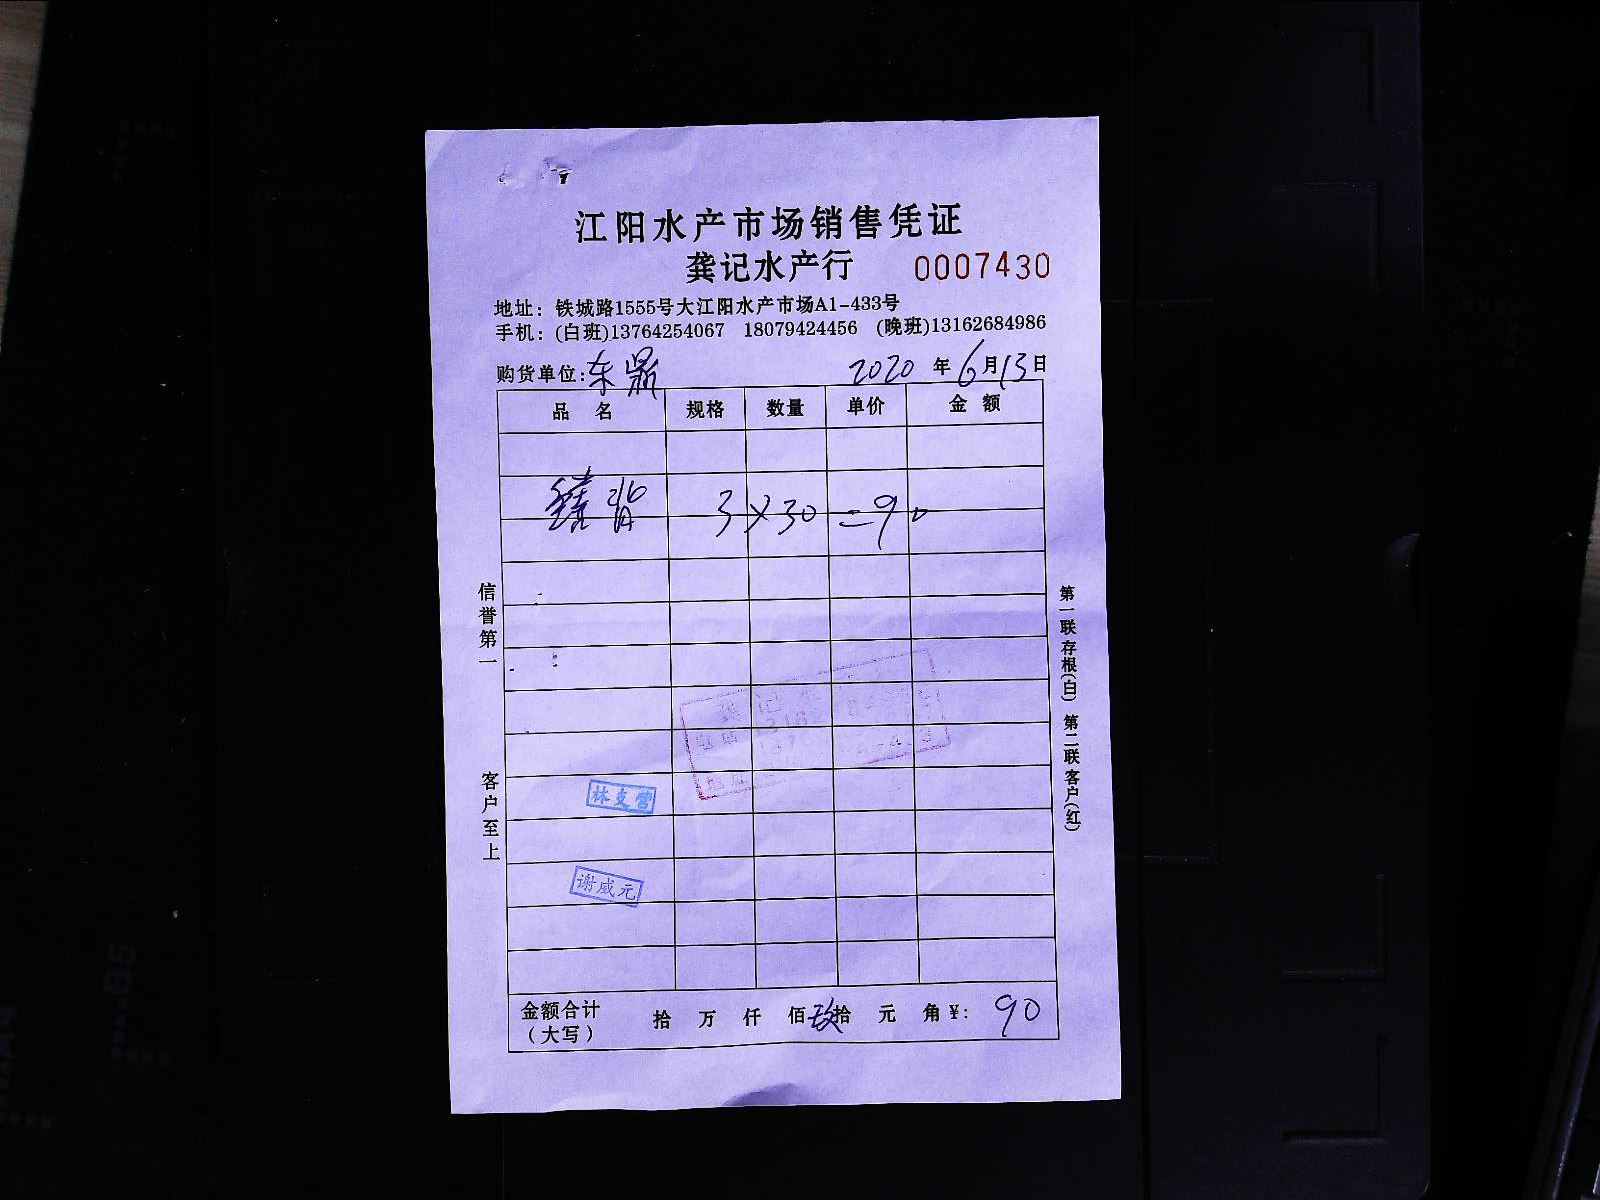 江阳水产市场销售凭证
龚记水产行 0007430
地址：铁城路1555号大江阳水产市场A1-433号
手机：(白班)13764254067 18079424456 (晚班)13162684986
购货单位:东鼎 2020 年 6月13日
品 名 规格 数量 单价 金 额
背 3×30=90
信誉第一
客户至上
第一联存根(白) 第二联客户(红)
林支营
谢威元
金额合计
(大写) 拾 万 仟 佰玖拾 元 角¥: 90
B5